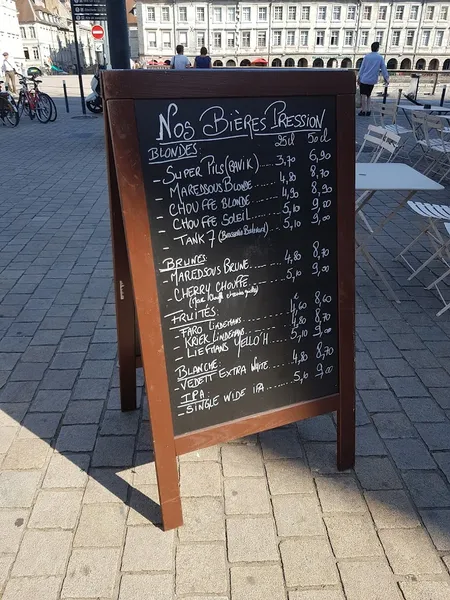 Nos Bières Pression
25cl 50cl
BLONDES
- Super Pils (Bavik) 3,70 6,90
- Maredsous Blonde 4,80 8,70
- Chouffe Blonde 4,90 8,90
- Chouffe Soleil 5,10 9,00
- Tank 7 5,10 9,00
BRUNES
- Maredsous Brune 4,80 8,70
- Cherry Chouffe 5,10 9,00
FRUITÉS
- Faro Lindemans 4,60 8,60
- Kriek Lindemans 4,80 8,70
- Liefmans Yello'H 5,10 9,00
BLANCHE
- Vedett Extra White 4,80 8,70
IPA
- Single Wide IPA 5,10 9,00